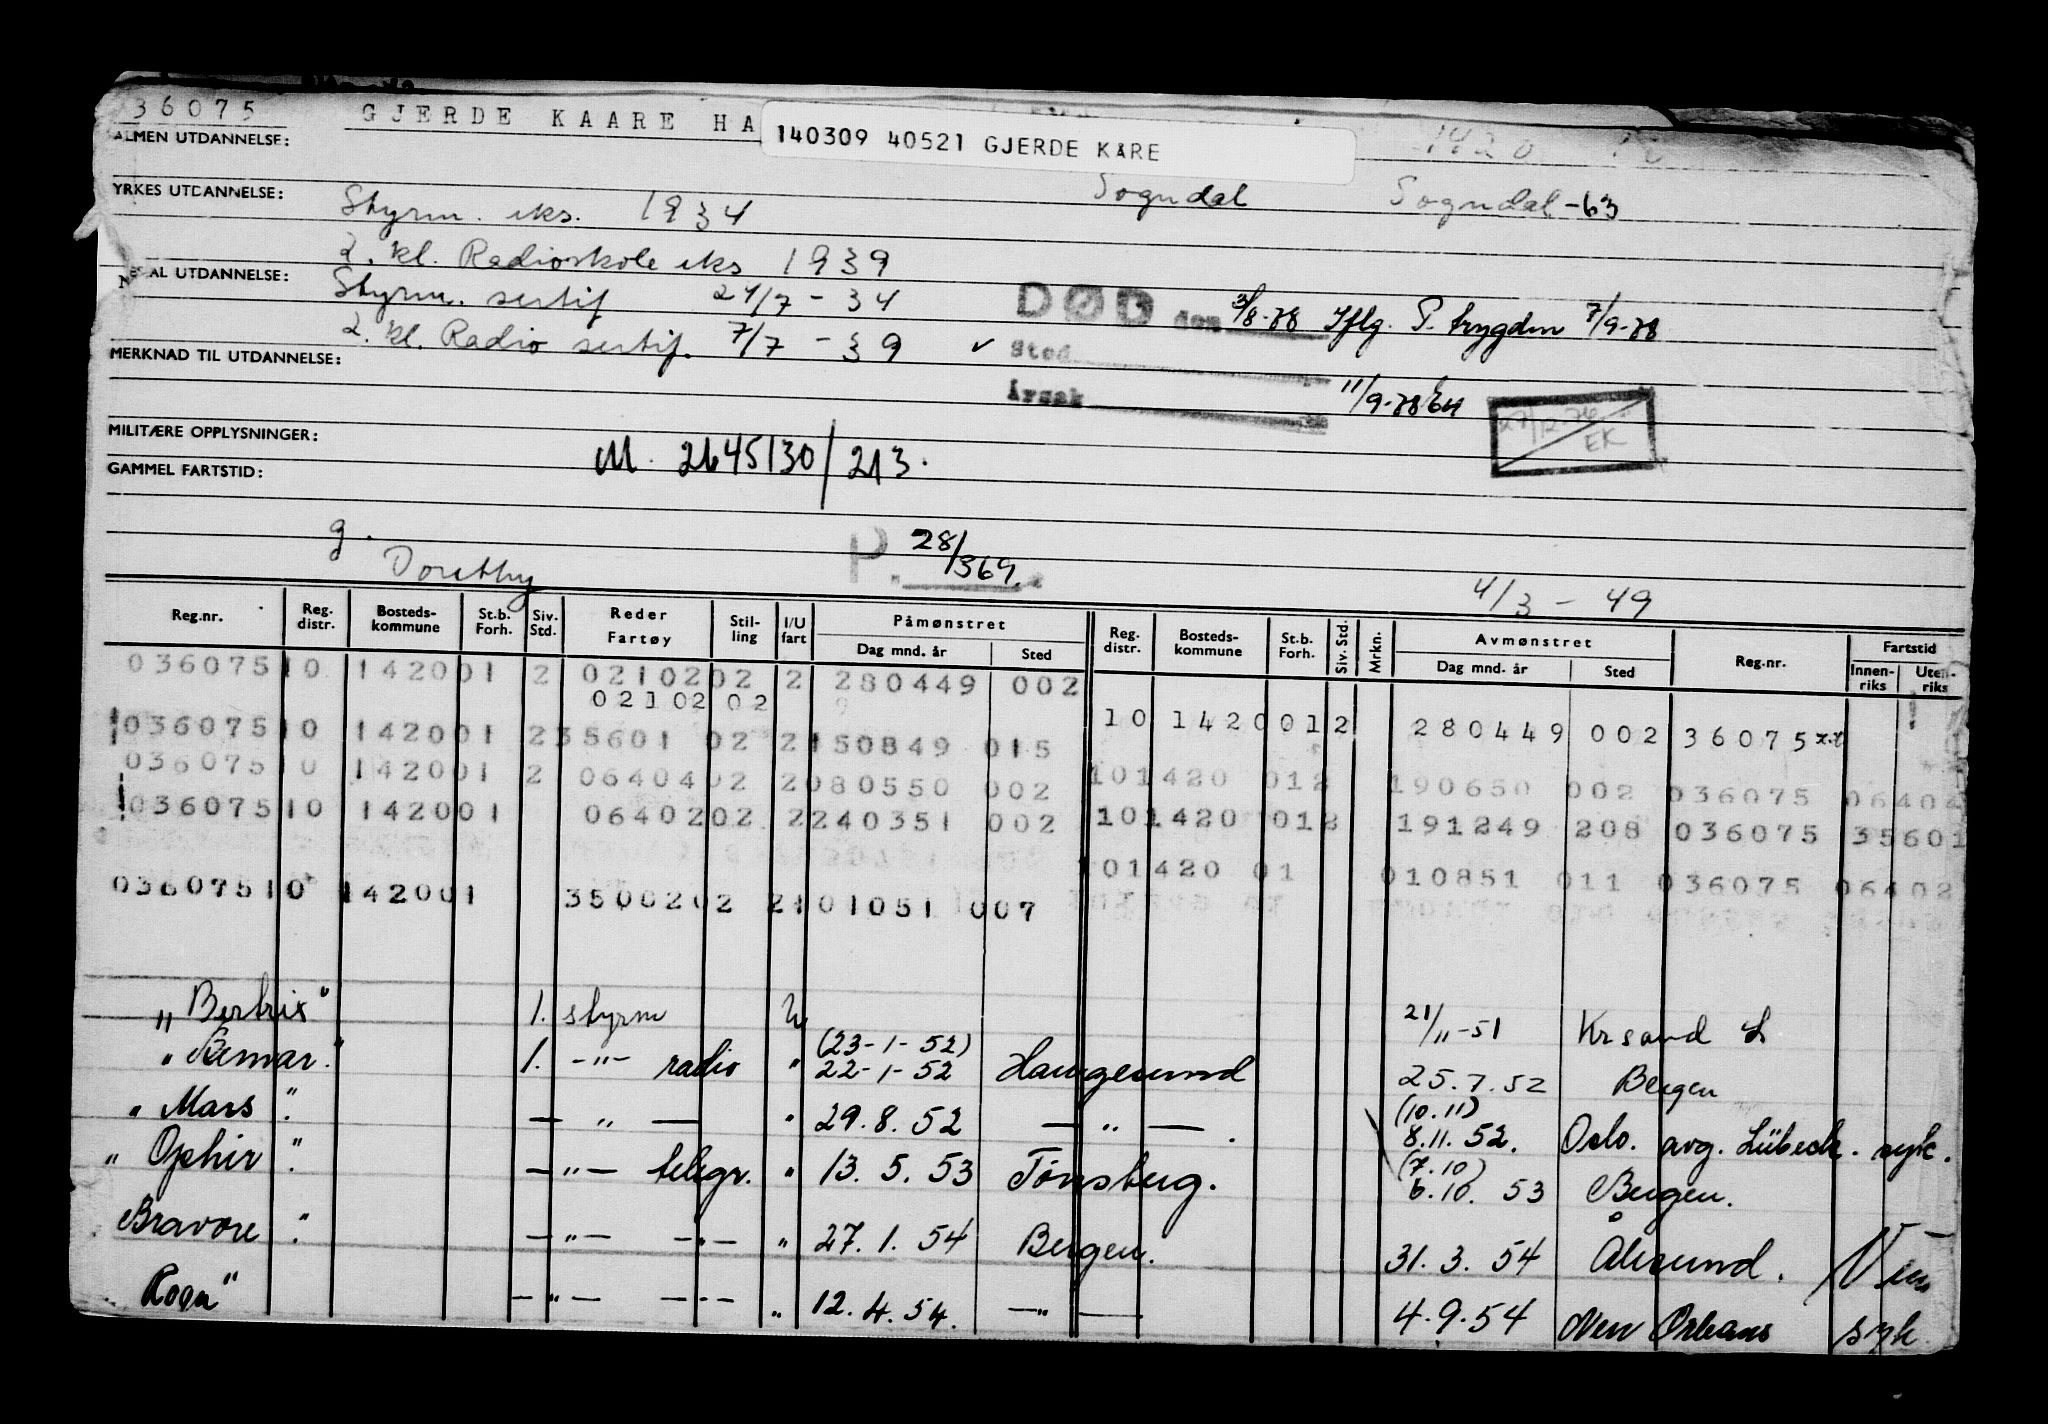 36075 GJERDE KAARE HA
140309 40521 GJERDE KÅRE
1420
ALMEN UTDANNELSE:
YRKES UTDANNELSE: Styrm. eks. 1934
Sogndal Sogndal -63
2. kl. Radioskole eks 1939
AL UTDANNELSE: Styrm. sertif 24/7 - 34
DØD den 3/8-78 Iflg. P. trygden 7/9-78
2. kl. Radio sertif. 7/7 - 39 ✓
Sted
MERKNAD TIL UTDANNELSE:
Årsak 11/9-78
27/12-76 EK
MILITÆRE OPPLYSNINGER:
M. 2645130/213.
GAMMEL FARTSTID:
g. P. 28/369.
Dorethy 4/3 - 49
Reg.nr. Reg. distr. Bosteds-kommune St.b. Forh. Siv. Std. Reder Fartøy Stil-ling I/U fart Påmønstret Dag mnd. år Sted Reg. distr. Bosteds-kommune St.b. Forh. Siv. Std. Mrkn. Avmønstret Dag mnd. år Sted Reg.nr. Fartstid Innen-riks Uten-riks
036075 10 1420 01 2 02102 02 2 280449 002
02102 02
10 1420 01 2 280449 002 36075
036075 10 1420 01 2 35601 02 2 150849 015
036075 10 1420 01 2 06404 02 2 080550 002
10 1420 01 2 190650 002 036075 06404
036075 10 1420 01 06402 02 2 240351 002
10 1420 01 2 191249 208 036075 35601
10 1420 01 010851 011 036075 06402
036075 10 1420 01 35002 02 2 101051 007
"Bertrix" 1. styrm U 21/11-51 Kr sand S
1. -"- radio " (23-1-52) 22-1-52 Haugesund 25.7.52 Bergen
"Mars" - " - " 29.8.52 - " - . (10.11) 8.11.52. Oslo. avg. Lübeck. syk.
"Ophir" - " - telegr. " 13.5.53 Tønsberg. (7.10) 6.10.53 Bergen.
Bravore " - " - - " - " 27.1.54 Bergen. 31.3.54 Ålesund.
- " - - " - " 12.4.54. - " - 4.9.54 New Orleans syk